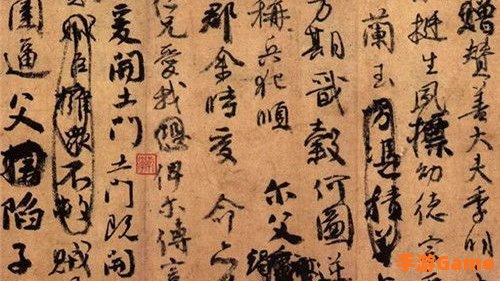 贈贊善大夫季明
挺生夙標幼德宗
蘭玉方憑積善
方期戩穀何圖逆
稱兵犯順 尔父
郡余時受命亦
仁兄愛我恐俾尔傳言
爰開土門土門既開
賊臣擁衆不救賊
圍逼父陷子
手游Game